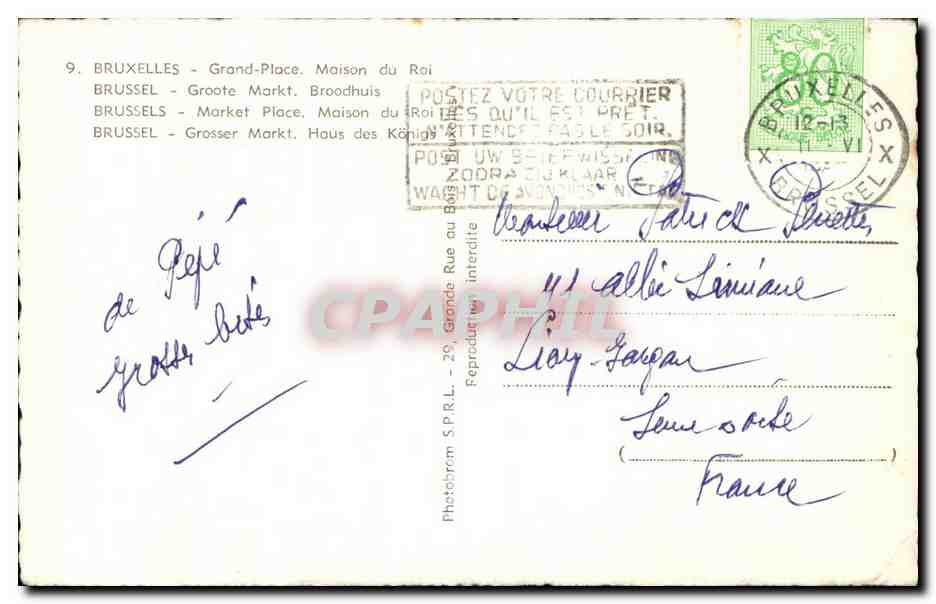 9. BRUXELLES - Grand-Place. Maison du Roi
BRUSSEL - Groote Markt. Broodhuis
BRUSSELS - Market Place. Maison du Roi
BRUSSEL - Grosser Markt. Haus des Königs
POSTEZ VOTRE COURRIER
DES QU'IL EST PRÊT.
N'ATTENDEZ PAS LE SOIR.
POST UW BRIEFWISSELING
ZODRA ZIJ KLAAR
WACHT DE AVOND NIET
80
BRUXELLES
12-13
11 VI
X X
BRUSSEL
de Pépé
grosses
Photobrom S.P.R.L. - 29, Grande Rue au Bois, Bruxelles
Reproduction interdite
Monsieur Patrick
41 allée Simiane
Seine et Oise
France
CPAPHIL